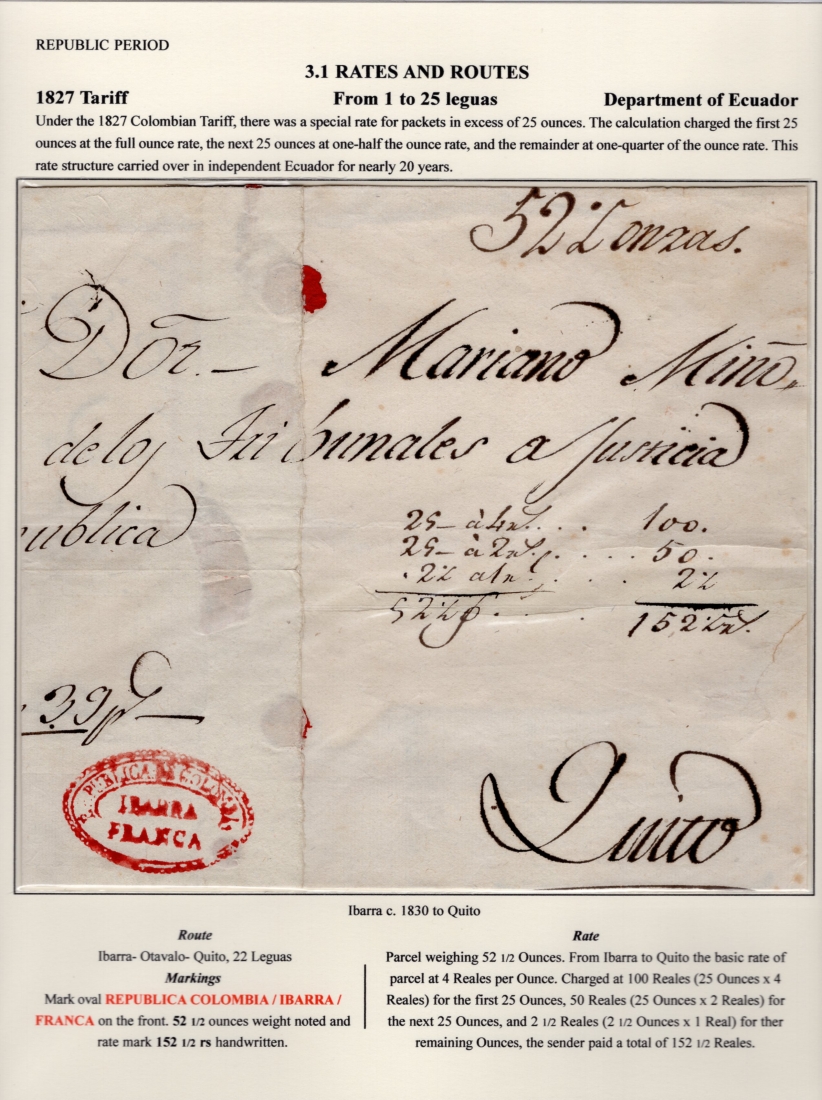 REPUBLIC PERIOD
3.1 RATES AND ROUTES
1827 Tariff From 1 to 25 leguas Department of Ecuador
Under the 1827 Colombian Tariff, there was a special rate for packets in excess of 25 ounces. The calculation charged the first 25
ounces at the full ounce rate, the next 25 ounces at one-half the ounce rate, and the remainder at one-quarter of the ounce rate. This
rate structure carried over in independent Ecuador for nearly 20 years.
52½ onzas.
Dor.- Mariano Miño,
de los Tribunales a Justicia
ublica
25- à 4 rs. . . 100.
25- à 2 rs. . . . . 50.
2½ a 1 r. . . . 2½
52½ . . . 152½ rs.
39 p
REPUBLICA DE COLOMBIA
IBARRA
FRANCA
Quito
Ibarra c. 1830 to Quito
Route
Ibarra- Otavalo- Quito, 22 Leguas
Markings
Mark oval REPUBLICA COLOMBIA / IBARRA /
FRANCA on the front. 52 1/2 ounces weight noted and
rate mark 152 1/2 rs handwritten.
Rate
Parcel weighing 52 1/2 Ounces. From Ibarra to Quito the basic rate of
parcel at 4 Reales per Ounce. Charged at 100 Reales (25 Ounces x 4
Reales) for the first 25 Ounces, 50 Reales (25 Ounces x 2 Reales) for
the next 25 Ounces, and 2 1/2 Reales (2 1/2 Ounces x 1 Real) for ther
remaining Ounces, the sender paid a total of 152 1/2 Reales.